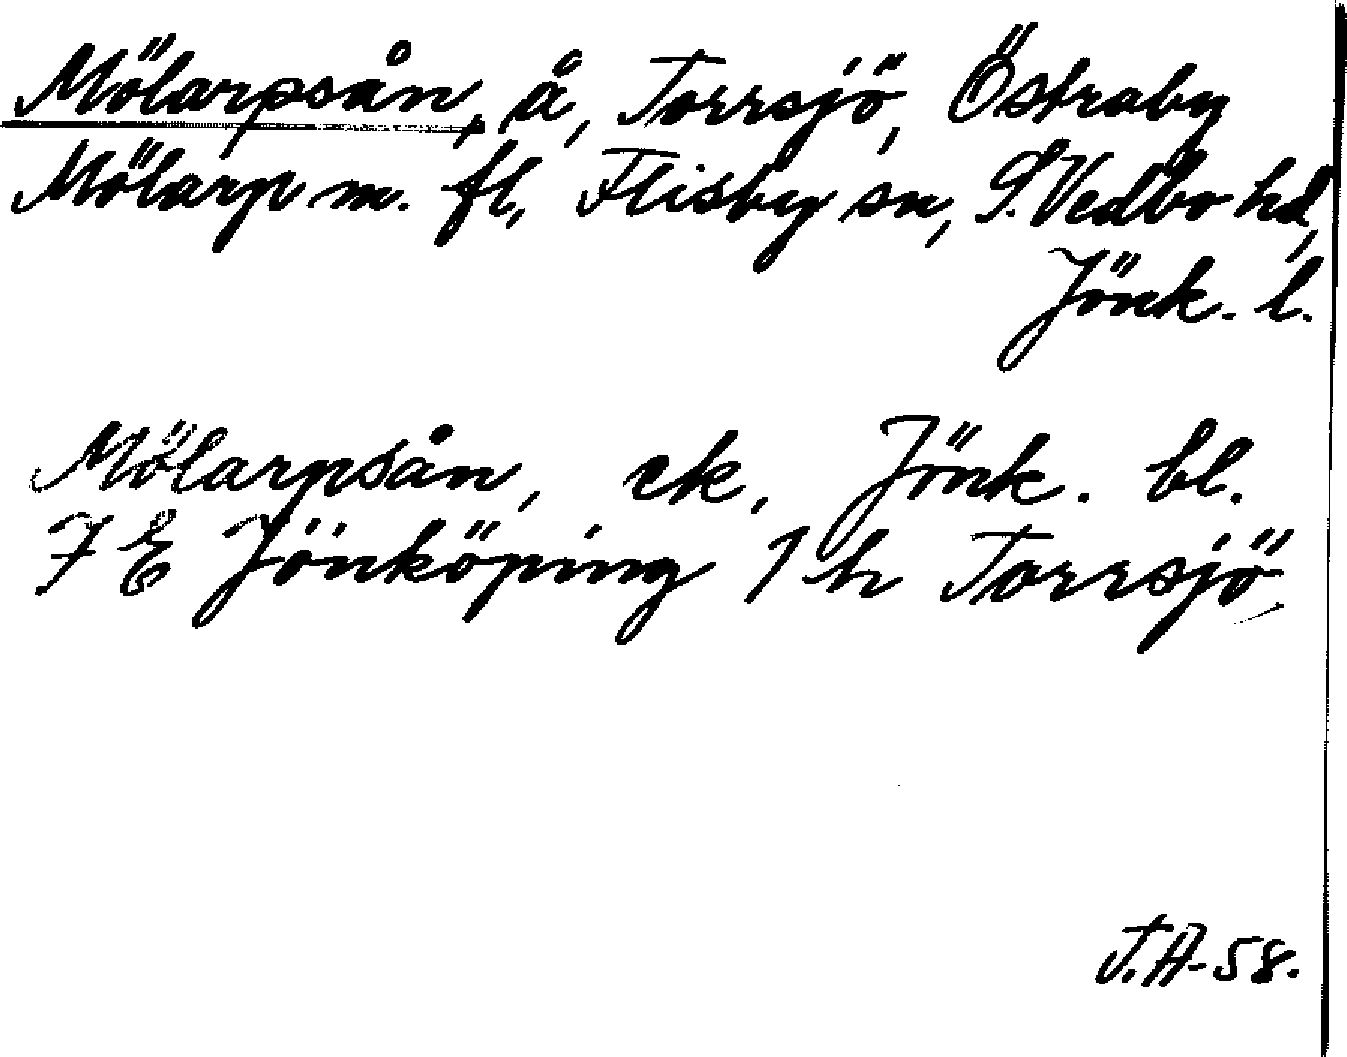 Mölarpsån, å, Torrsjö, Östraby
Mölarp m. fl., Flisby sn, S. Vedbo hd,
Jönk. l.
Mölarpsån, ek, Jönk. bl.
7 E Jönköping 1 h Torrsjö
J.A-58.